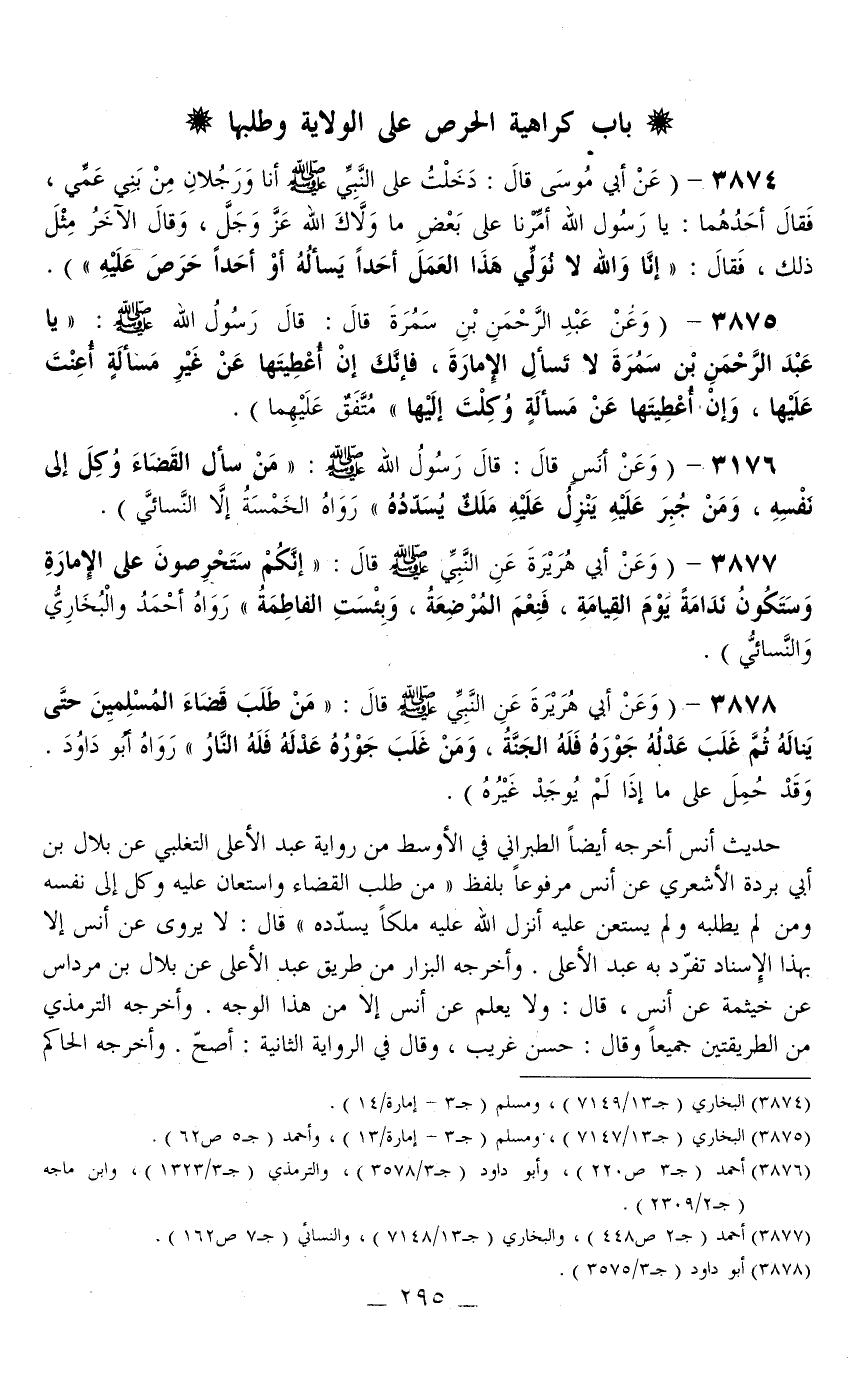 ❋ باب كراهية الحرص على الولاية وطلبها ❋
٣٨٧٤ – ( عَنْ أبي مُوسَى قالَ : دَخَلْتُ على النَّبِيِّ ﷺ أنا وَرَجُلانِ مِنْ بَنِي عَمِّي ،
فَقالَ أحَدُهُما : يا رَسُول الله أمِّرْنا على بَعْضِ ما وَلَّاكَ الله عَزَّ وَجَلَّ ، وَقالَ الآخَرُ مِثْلَ
ذلك ، فَقالَ : « إنَّا وَالله لا نُوَلِّي هَذَا العَمَلَ أحَداً يَسألُهُ أوْ أحَداً حَرَصَ عَلَيْهِ » ) .
٣٨٧٥ – ( وَعَنْ عَبْدِ الرَّحْمَنِ بْنِ سَمُرَةَ قالَ : قالَ رَسُولُ الله ﷺ : « يا
عَبْدَ الرَّحْمَنِ بْن سَمُرَةَ لا تَسألِ الإِمارَةَ ، فإنَّكَ إنْ أُعْطِيتَها عَنْ غَيْرِ مَسألَةٍ أُعِنْتَ
عَلَيْها ، وَإنْ أُعْطِيتَها عَنْ مَسألَةٍ وُكِلْتَ إلَيْها » مُتَّفَقٌ عَلَيْهِما ) .
٣١٧٦ – ( وَعَنْ أنَسٍ قالَ : قالَ رَسُولُ الله ﷺ : « مَنْ سأل القَضَاءَ وُكِلَ إلى
نَفْسِهِ ، وَمَنْ جُبِرَ عَلَيْهِ يَنْزِلُ عَلَيْهِ مَلَكٌ يُسَدّدُهُ » رَوَاهُ الخَمْسَةُ إلَّا النَّسائيَّ ) .
٣٨٧٧ – ( وَعَنْ أبي هُرَيْرَةَ عَنِ النَّبِيِّ ﷺ قالَ : « إنَّكُمْ سَتَحْرِصونَ على الإِمارَةِ
وَسَتَكُونُ نَدَامَةً يَوْمَ القِيامَةِ ، فَنِعْمَ المُرْضِعَةُ ، وَبِئْسَتِ الفاطِمَةُ » رَوَاهُ أحْمَدُ والْبُخَارِيُّ
وَالنَّسائيُّ ) .
٣٨٧٨ – ( وَعَنْ أبي هُرَيْرَةَ عَنِ النَّبِيِّ ﷺ قالَ : « مَنْ طَلَبَ قَضَاءَ المُسْلِمِينَ حتَّى
يَنالَهُ ثُمَّ غَلَبَ عَدْلُهُ جَوْرَهُ فَلَهُ الجَنَّةُ ، وَمَنْ غَلَبَ جَوْرُهُ عَدْلَهُ فَلَهُ النَّارُ » رَوَاهُ أبُو دَاوُدَ .
وَقَدْ حُمِلَ على ما إذَا لَمْ يُوجَدْ غَيْرُهُ ) .
حديث أنس أخرجه أيضاً الطبراني في الأوسط من رواية عبد الأعلى التغلبي عن بلال بن
أبي بردة الأشعري عن أنس مرفوعاً بلفظ « من طلب القضاء واستعان عليه وكل إلى نفسه
ومن لم يطلبه ولم يستعن عليه أنزل الله عليه ملكاً يسدّده » قال : لا يروى عن أنس إلا
بهذا الإِسناد تفرّد به عبد الأعلى . وأخرجه البزار من طريق عبد الأعلى عن بلال بن مرداس
عن خيثمة عن أنس ، قال : ولا يعلم عن أنس إلا من هذا الوجه . وأخرجه الترمذي
من الطريقتين جميعاً وقال : حسن غريب ، وقال في الرواية الثانية : أصحّ . وأخرجه الحاكم
(٣٨٧٤) البخاري ( جـ٧١٤٩/١٣ ) ، ومسلم ( جـ٣ – إمارة/١٤ ) .
(٣٨٧٥) البخاري ( جـ٧١٤٧/١٣ ) ، ومسلم ( جـ٣ – إمارة/١٣ ) ، وأحمد ( جـ٥ ص٦٢ ) .
(٣٨٧٦) أحمد ( جـ٣ ص٢٢٠ ) ، وأبو داود ( جـ٣٥٧٨/٣ ) ، والترمذي ( جـ١٣٢٣/٣ ) ، وابن ماجه
( جـ٢٣٠٩/٢ ) .
(٣٨٧٧) أحمد ( جـ٢ ص٤٤٨ ) ، والبخاري ( جـ٧١٤٨/١٣ ) ، والنسائي ( جـ٧ ص١٦٢ ) .
(٣٨٧٨) أبو داود ( جـ٣٥٧٥/٣ ) .
_ ٢٩٥ _